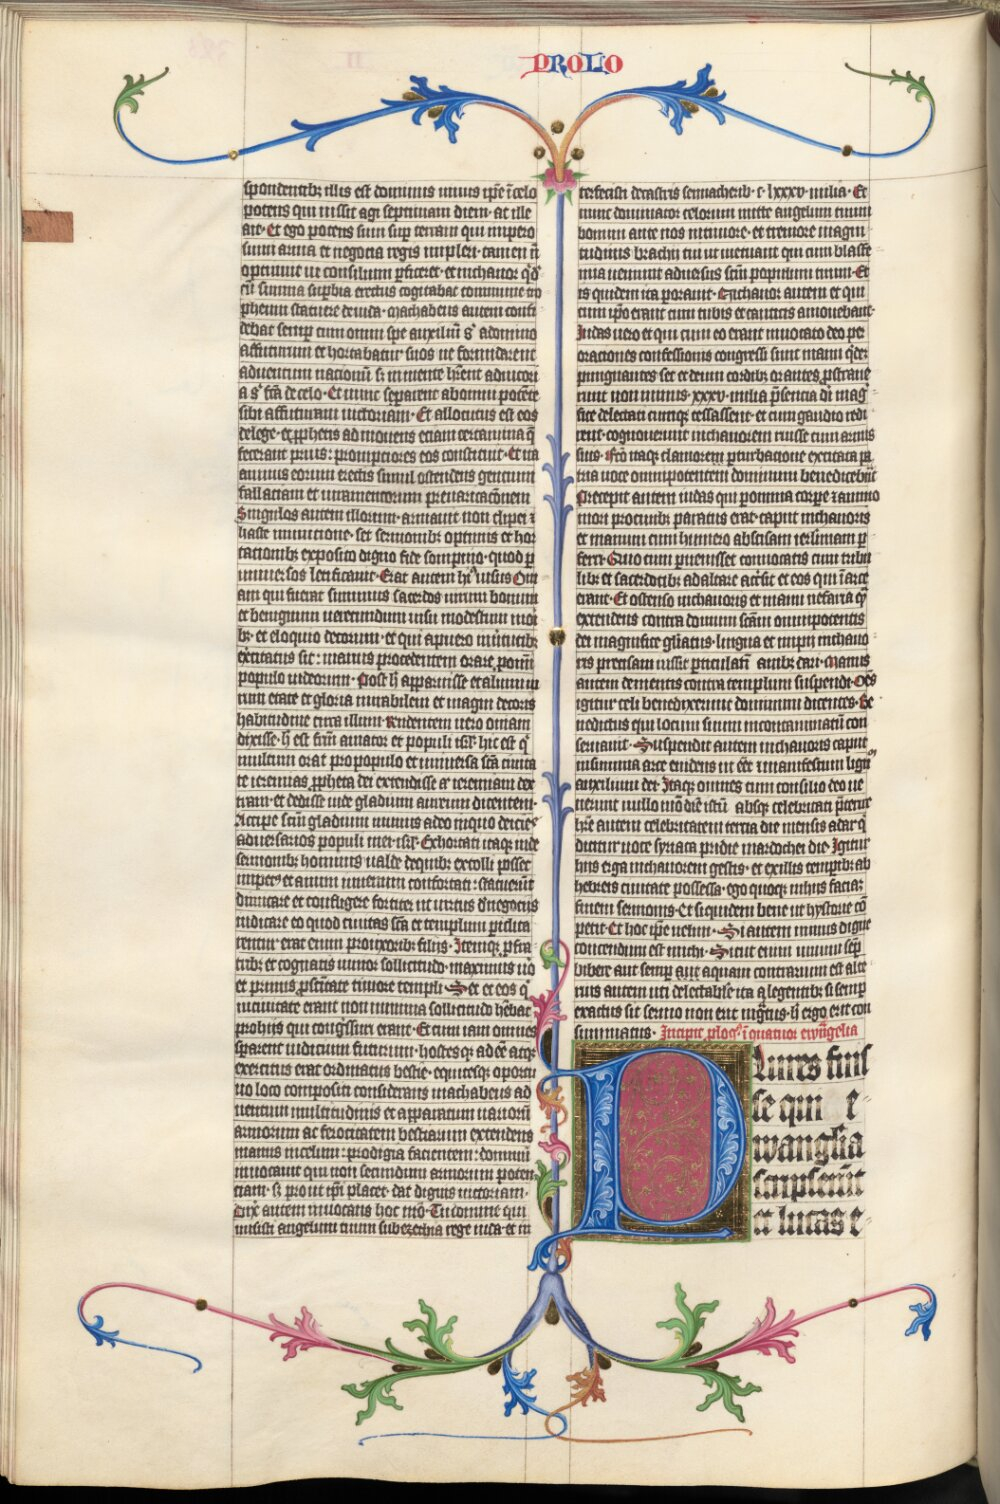 PROLO
spondentibꝫ illis est dominus uiuus ip̅e i̅ celo
potens qui iussit agi septimam diem· at ille
ait· Et ego potens sum sup terram qui impero
sumi arma et negocia regis impleri· tamen n̅
optinuit ut consilium p̲ficeret· et nichanor q̇d̅
cu̅ summa sup̲bia erectus cogitabat commune tro
pheum statuere de iuda· Machabeus autem confi
debat semp̲ cum omni spe auxiliu̅ s̅ a domino
affuturum et hortabatur suos ne formidarent
aduentum nationu̅ s̅ in mente h̅rent adiutori
a s̅ f̅ca de celo· Et nunc sp̲arent ab omni̅pote̅te
sibi affuturam uictoriam· Et allocutus est eos
de lege· et p̲phetis admonens eciam certamina q̅
fecerant prius: promptiores eos constituit· Et ita
animis eorum erectis simul ostendens gentium
fallaciam et iuramentorum preuaricac̅onem
Singulos autem illorum· armauit non clipei ⁊
haste munitione· set sermonibꝫ optimis et hor
tationibꝫ exposito digno fide sompnio· quod p̲
uniuersos letificauit· Erat autem hi9 uisus Oni
am qui fuerat summus sacerdos uirum bonum
et benignum uerecundum uisu modestum mori
bꝫ et eloquio decorum· et qui a puero i̅ uirtutibꝫ
exercitatus sit: manus protendentem orare p̲ omni
populo iudeorum· Post h̅ apparuisse et alium ui
rum etate et gloria mirabilem et magni decoris
habitudine circa illum· Respondentem uero oniam
dixisse· h̅ est fr̅m amator et populi isrl̅· hic est q̇
multum orat pro populo et uniuersa sc̅a ciuita
te ieremias p̲pheta dei extendisse aut̅ ieremiam dex
tram· et dedisse iude gladium aureum dicentem·
Accipe sc̅m gladium munus a deo in quo deicies
aduersarios populi mei isrl̅· Exhortati itaqꝫ iude
sermonibꝫ bonis ualde de quibꝫ extolli posset
impet9 et animi iuuenum confortari: statuerunt
dimicare et confligere fortiter ut uirtus d̅ negociis
iudicaret eo quod ciuitas sc̅a et templum piclita
rentur erat enim pro uxoribꝫ filiis· Itemqꝫ p̲ fra
tribꝫ et cognatis minor sollicitudo· maximus u̅o
et primus p̲ sc̅itate timor templi· Set et eos q̇
in ciuitate erant non minima sollicitudo h̅ebat
pro hiis qui cong̅ssuri erant· Et cum iam omnes
sp̲arent iudicium futurum· hostesqꝫ adee̅ atqꝫ
exercitus erat ordinatus bestie· equitesqꝫ oportu
no loco compositi considerans machabeus ad
uentum multitudinis et apparatum uarioru̅
armorum ac ferocitatem bestiarum extendens
manus in celum: prodigia facientem: dominu̅
inuocauit qui non secundum armorum poten
ciam· s̅ prout ip̅i placet· dat dignis uictoriam·
Dixit autem inuocans hoc mo̅· Tu domine qui
misisti angelum tuum sub ezechia rege iuda· et in
terfecisti de castris sennacherib· c· lxxxv· milia· Et
nunc dominator celorum mitte angelum tuum
bonum ante nos in timore· et tremore magni
tudinis brachii tui ut metuant qui cum blasfe
mia ueniunt aduersus sc̅m populum tuum· Et
is quidem ita perorauit· Nichanor autem et qui
cum ip̅o erant cum tubis et canticis amouebant·
Iudas uero et qui cum eo erant inuocato deo per
orationes confessionis congressi sunt manu q̇de̅
pungnantes set et deum cordibꝫ orantes p̲strauer
runt non minus xxxv· milia p̲sencia di̅ mag
fice delectati cumqꝫ cessassent· et cum gaudio redi
rent· cognouerunt nichanorem ruisse cum armis
suis· F̅co itaqꝫ clamorem p̲turbacione excitata pa
tria uoce omnipotentem dominum benedicebant
Precepit autem iudas qui p̲ omnia corpe ⁊ animo
mori pro ciuibꝫ paratus erat· caput nichanoris
et manum cum humero abscisam ierl̅imam p̲
ferri· Quo cum p̲uenisset conuocatis cum tribu
libꝫ et sacerdotibꝫ ad altare accersit et eos qui i̅ arce
erant· Et ostenso nichanoris et manu nefaria q̅
extendens contra domum sc̅am omnipotentis
dei magnifice gl̅iatus· lingua et impii nichano
ris precisam iussit p̲ticulati̅ auibꝫ dari· Manus
autem dementis contra templum suspendi· Oe̅s
igitur celi benedixerunt dominum dicentes· Be
nedictus qui locum suum incontaminatu̅ con
seruauit· Suspendit autem nichanoris caput
in summa arce euidens ut ee̅t ⁊ manifestum signu̅
auxilium dei· Itaqꝫ omnes cum consilio deo ue
nerunt nullo mo̅ die̅ istu̅ absqꝫ celebritati p̲terire
h̅re autem celebritatem tercia die mensis adar q̇
dicitur uoce syriaca pridie mardochei die Igitur
hiis erga nichanorem gestis· et ex illis temp̲ibꝫ ab
hebreis ciuitate possessa· ego quoqꝫ in hiis faciaz
finem sermonis· Et si quidem bene ut hystorie co̅
petit· Et hoc ip̅e uelim· Si autem minus digne
concedendum est michi· Sicut enim uinum sep̲
bibere aut semp̲ aut aquam contrarium est alte
rius autem uti delectabile ita q̲ legentibꝫ si semp̲
exactus sit sermo non erit ing̅tus· h̅ ergo erit con
summatus· Incipit plog9 i̅ quatuor ewangelia
Plures fuis
se qui e
wanglia
scripseru̅t
et lucas e